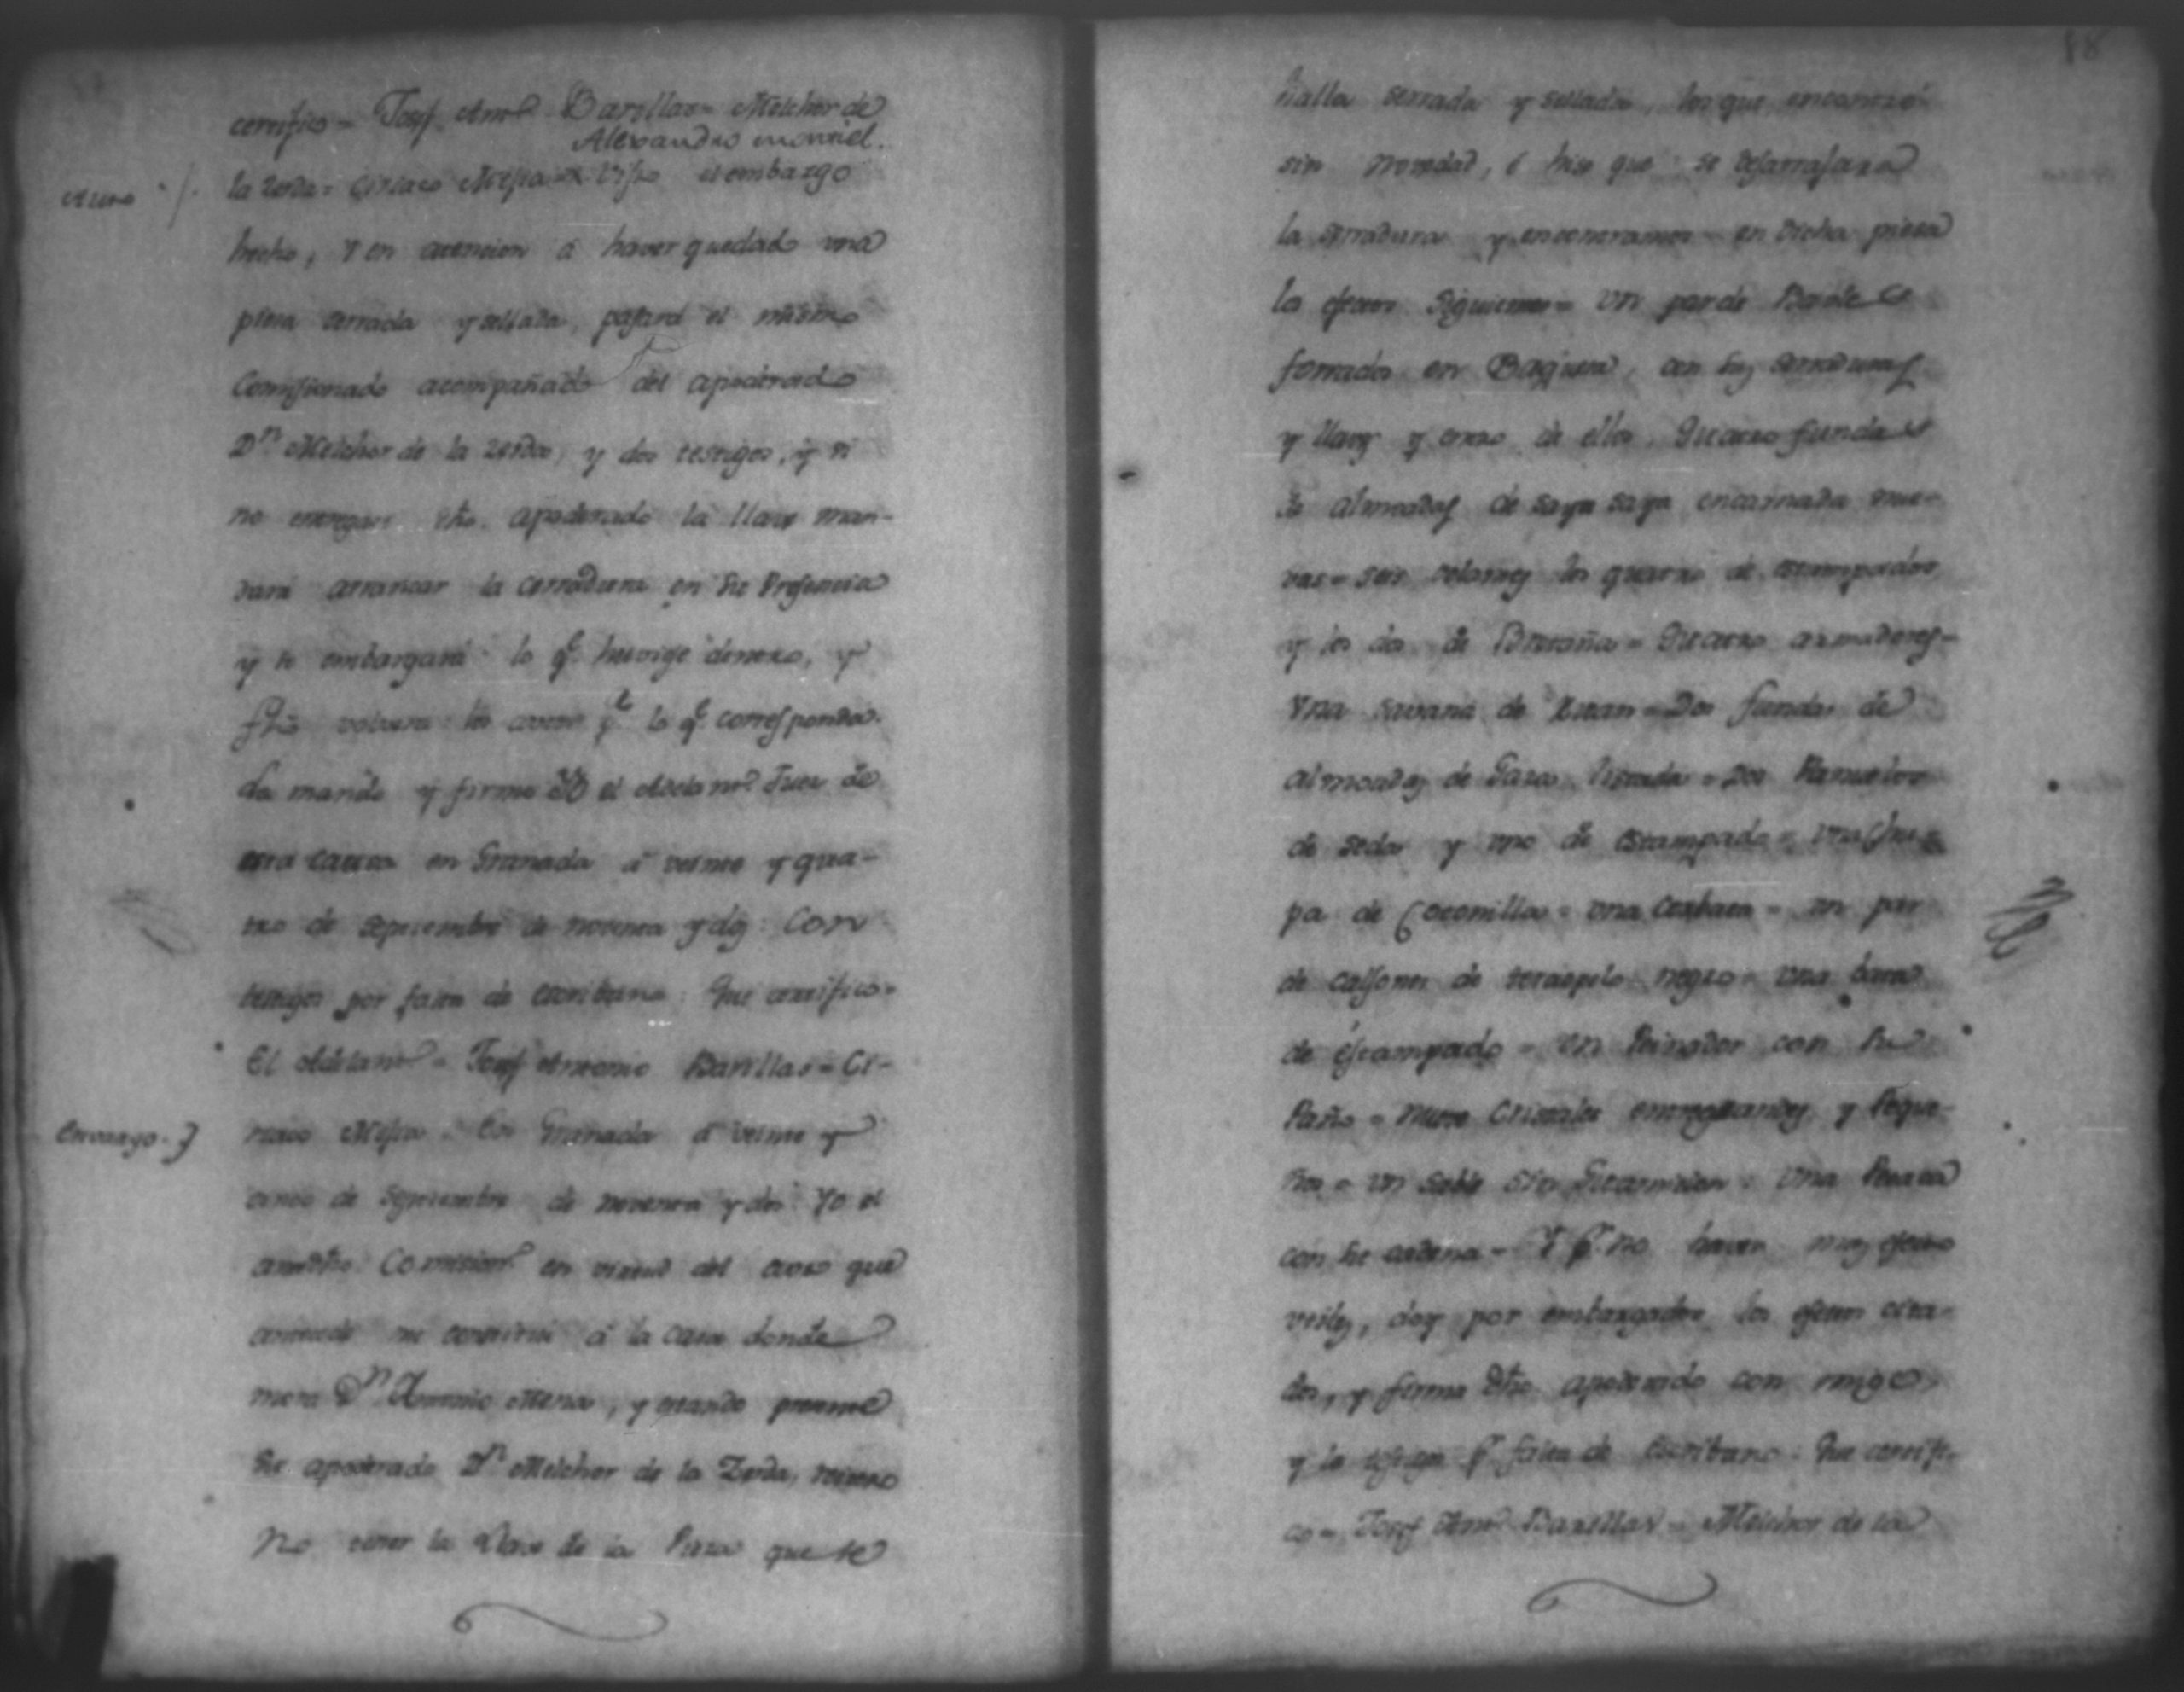 certifico = Josef Antᵒ Barillas = Melchor de
Alexandro montiel.
la Zerda = Ciriaco Mesia = Visto el embargo
Auto
hecho, y en atencion á haver quedado una
piesa serrada y sellada, pasará el mismo
Comisionado acompañado del apoderado
Dⁿ Melchor de la Zerda, y dos testigos, y si
no entregare dho. apoderado la llave man-
dará arrancar la cerradura en su Presencia
y se embargará lo qᵉ huviese dentro, y
fho volvera los autos pᵃ lo qᵉ corresponda.
Lo mandó y firmó el Juez de
esta causa en Granada á veinte y qua-
tro de septiembre de noventa y dos: Con
testigos por falta de escribano: Que certifico =
El = Josef Antonio Barillas = Ci-
riaco Mesia. En Granada á veinte y
Embargo.
cinco de Septiembre de noventa y dos Yo el
antedho Comisionᵈᵒ en virtud del auto que
antecede me constitui á la casa donde
mora Dⁿ Antonio, y estando presente
su apoderado Dⁿ Melchor de la Zerda,
no tener la llave de la Piesa que se
88
halla serrada y sellada, los que encontré
sin novedad, é hise que se desarrajara
la serradura y encontramos en dicha piesa
los efectos siguientes = Un par de Baules
forrados en Baqueta, con sus serraduras
y llaves y dentro de ellos. Quatro fundas
de almoadas de saya saya encarnada nue-
vas = seis los quatro de estampados
y los dos de Bretaña = Quatro armadores =
Una savana de Ruan = Dos fundas de
almoadas de Gasa listada = Dos Pañuelos
de seda y uno de estampado = una chu-
pa de Cotonilla = una = un par
de calsones de terciopelo negro = una bara
de estampado = Un Peinador con su
Paño = nueve Cristales entregrandes y Peque-
ños = Un sable sin Guarnicion = Una
con su cadena = Y pʳ no haver mas efectos
, doy por embargados los efectos cita-
dos, y firma dho. apoderado con migo
y los testigos pʳ falta de Escribano: Que certifi-
co = Josef Antᵒ Barillas = Melchor de la